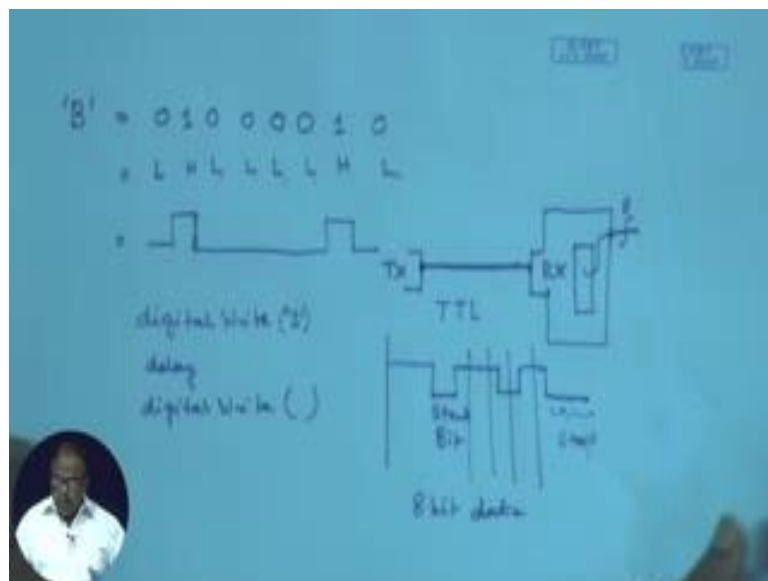 'B' = 0 1 0 0 0 0 1 0
= L H L L L L H L
=
TX RX
TTL
digital Write ('1')
delay
digital Write ( )
Start
Bit
Stop
8 bit data